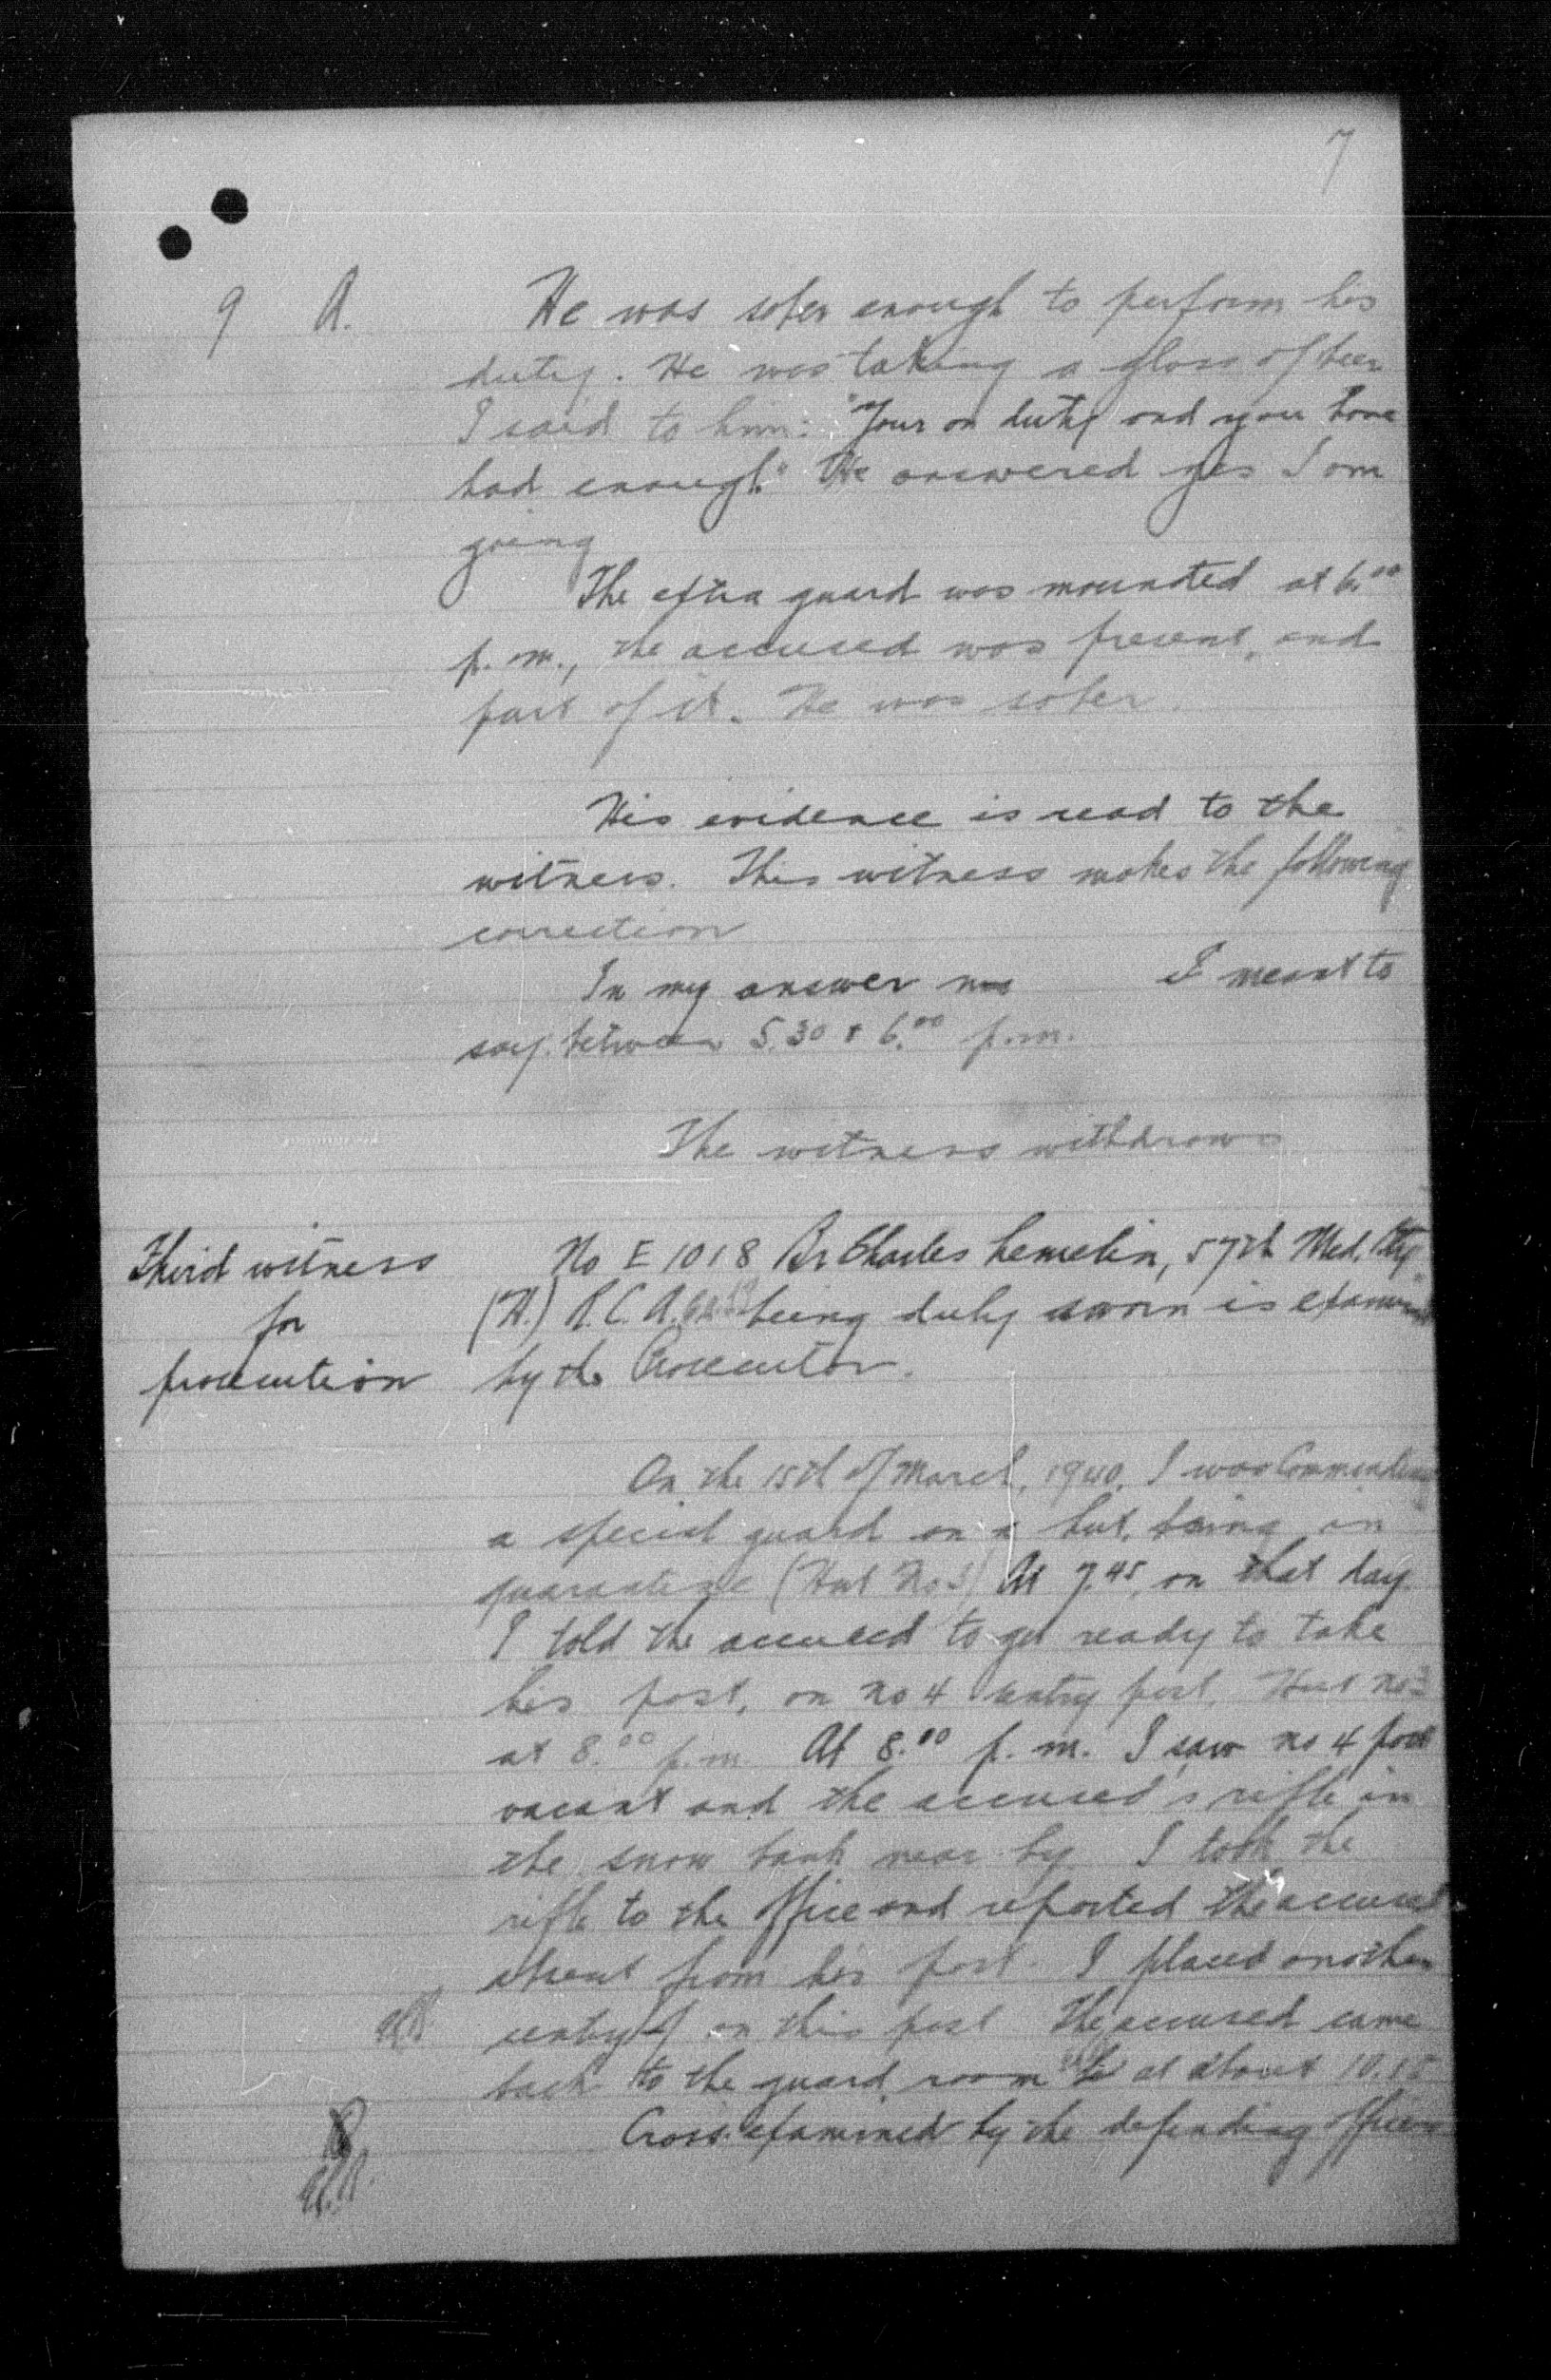 7
9 A. He was sober enough to perform his
duty. He was taking a glass of beer
I said to him: "Your on duty and you have
had enough" He answered yes I am
going
The extra guard was mounted at 6.00
p.m., the accused was present, and
part of it. He was sober.
His evidence is read to the
witness. This witness makes the following
correction
In my answer no I meant to
say between 5.30 & 6.00 p.m.
The witness withdraws
Third witness
for
prosecution
No E 1018 Br Charles Lemelin, 57th Med. Bty.
(H.) R.C.A. being duly sworn is examined
by the Prosecutor.
On the 15th of March, 1940, I was Commanding
a special guard on a hut, being in
quarantine (Hut No 3) At 7.45, on that day
I told the accused to get ready to take
his post, on no 4 sentry post, Hut no 3
at 8.00 p.m. At 8.00 p.m. I saw no 4 post
vacant and the accused's rifle in
the snow bank near by. I took the
rifle to the office and reported the accused
absent from his post. I placed another
sentry on this post The accused came
back to the guard room at about 10.15
Cross. examined by the defending officer